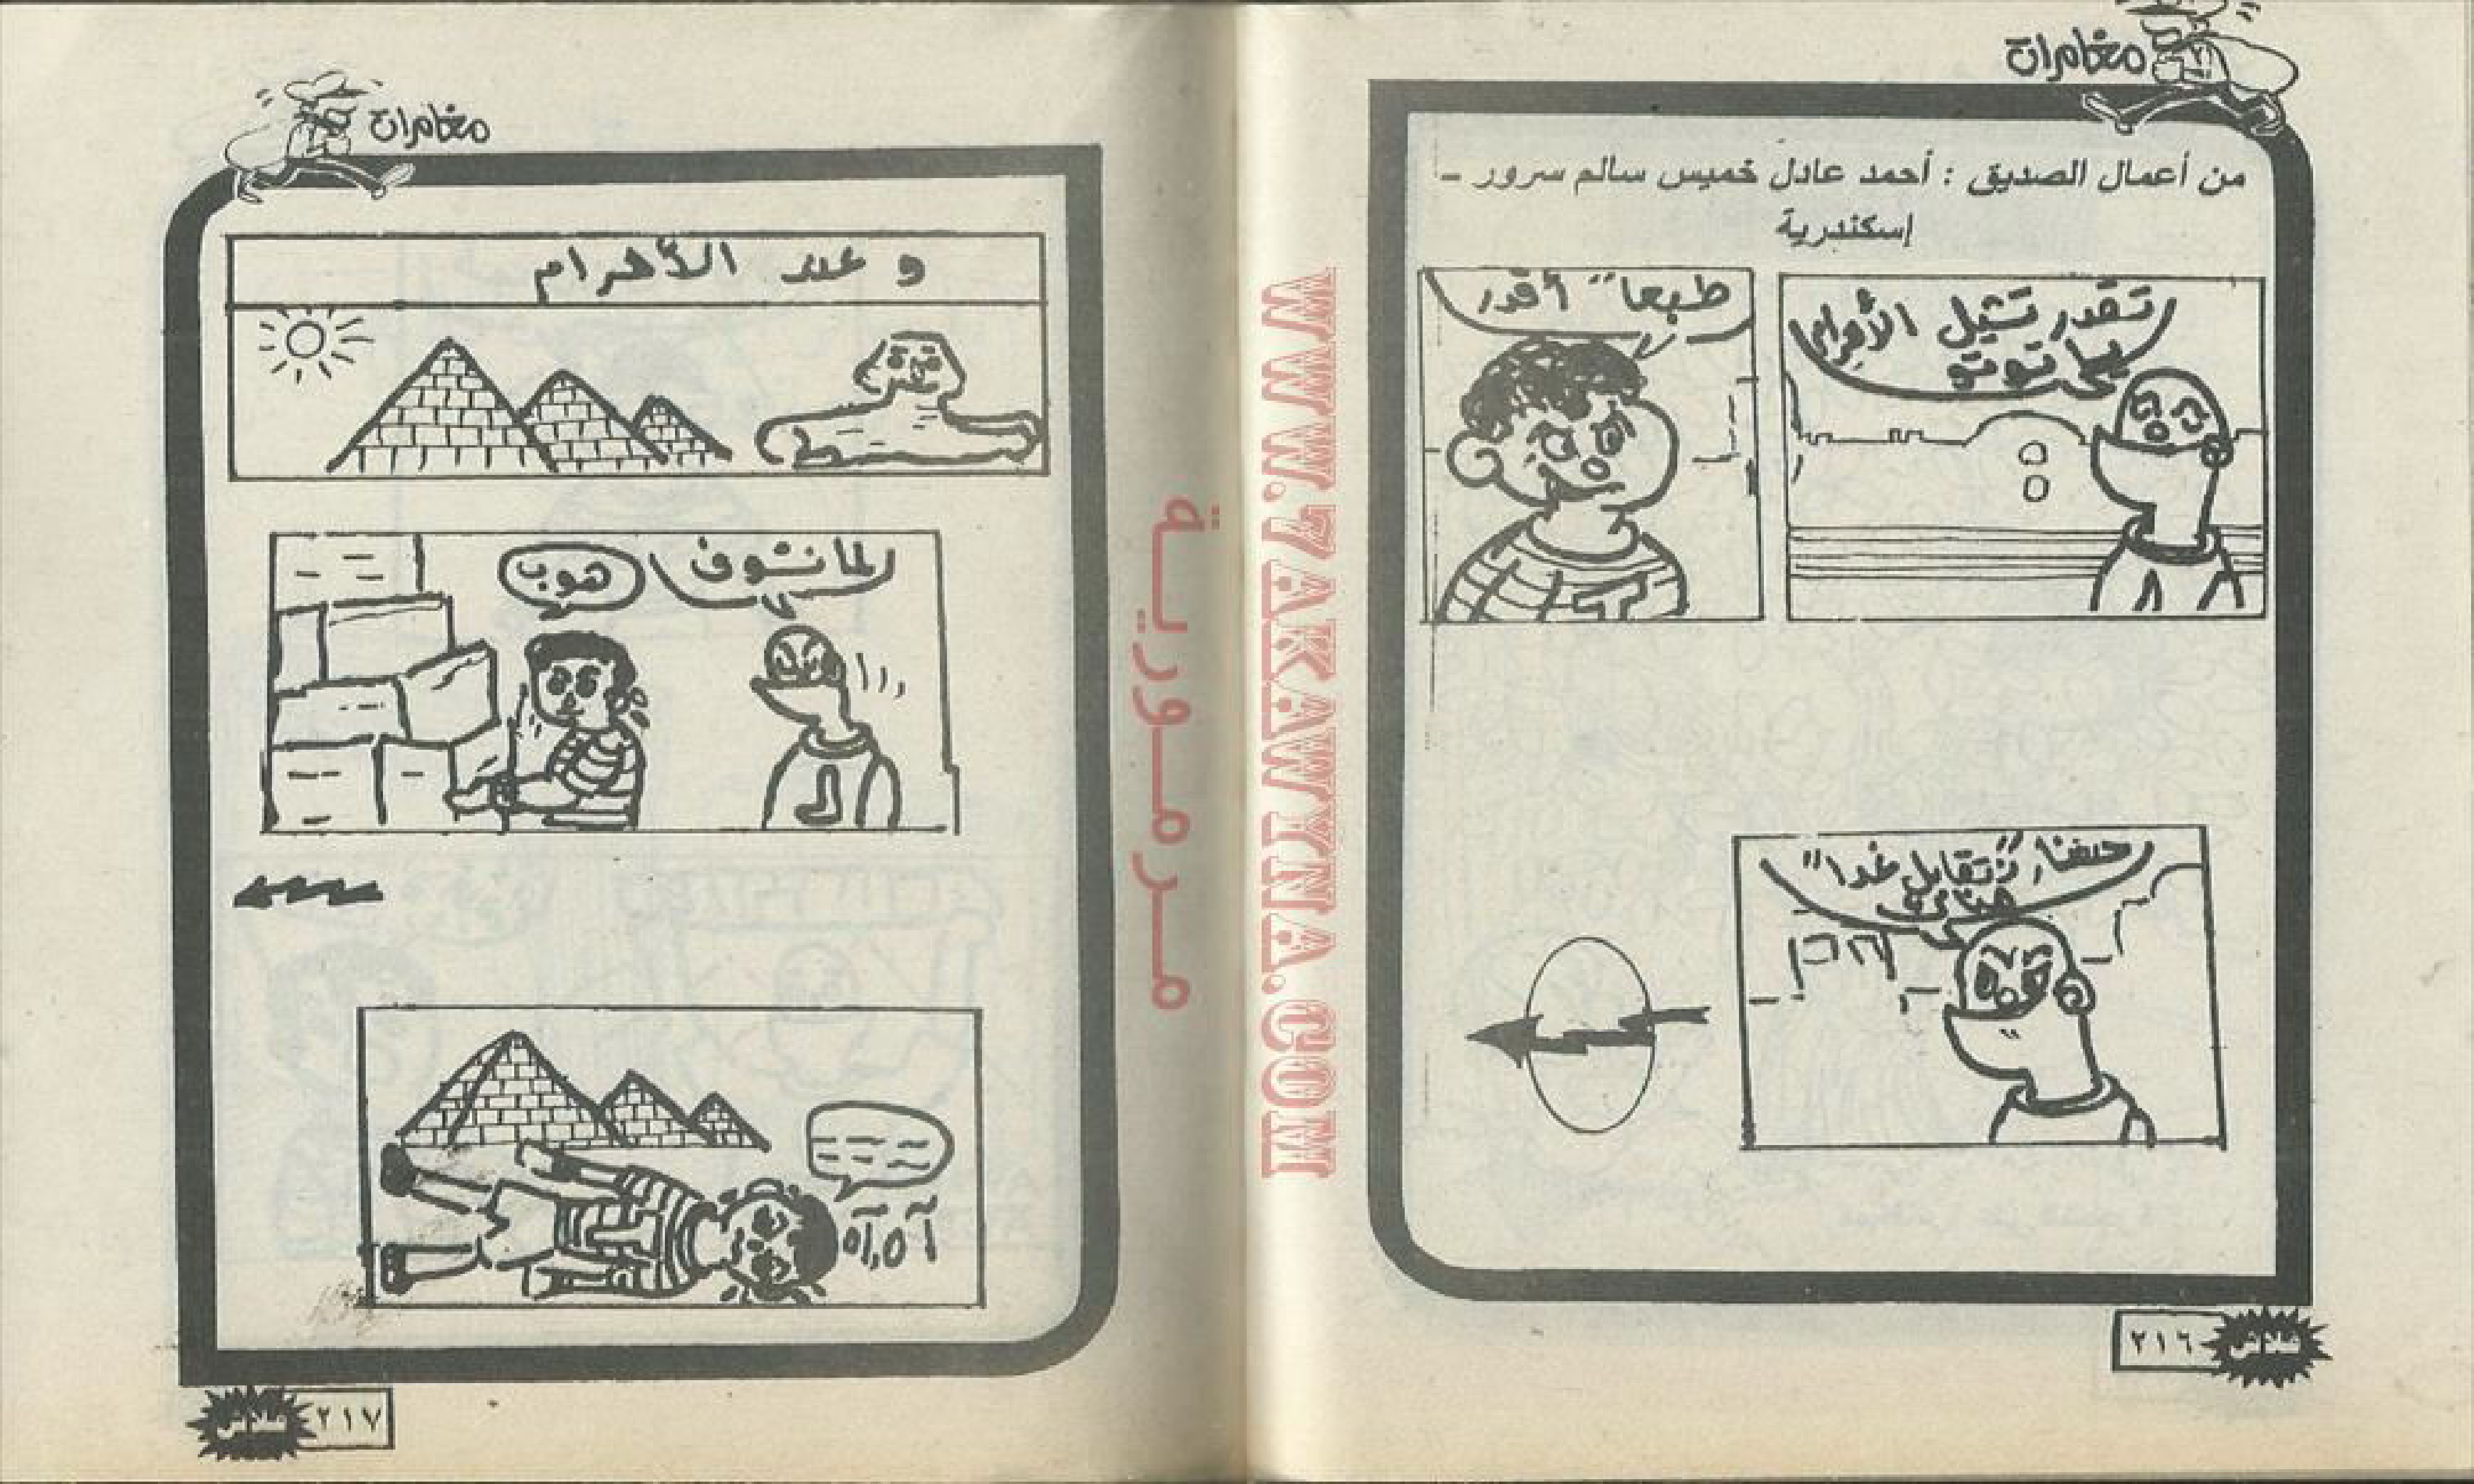 مغامرات
من أعمال الصديق : أحمد عادل خميس سالم سرور -
إسكندرية
تقدر تشيل الأهرام
يا توتو
طبعاً أقدر
حسناً, نتقابل غداً
٢١٦
WWW.7AKAWYNA.COM
مرمورية
مغامرات
و عند الأهرام
لما نشوف
هوب
آه,آه
٢١٧